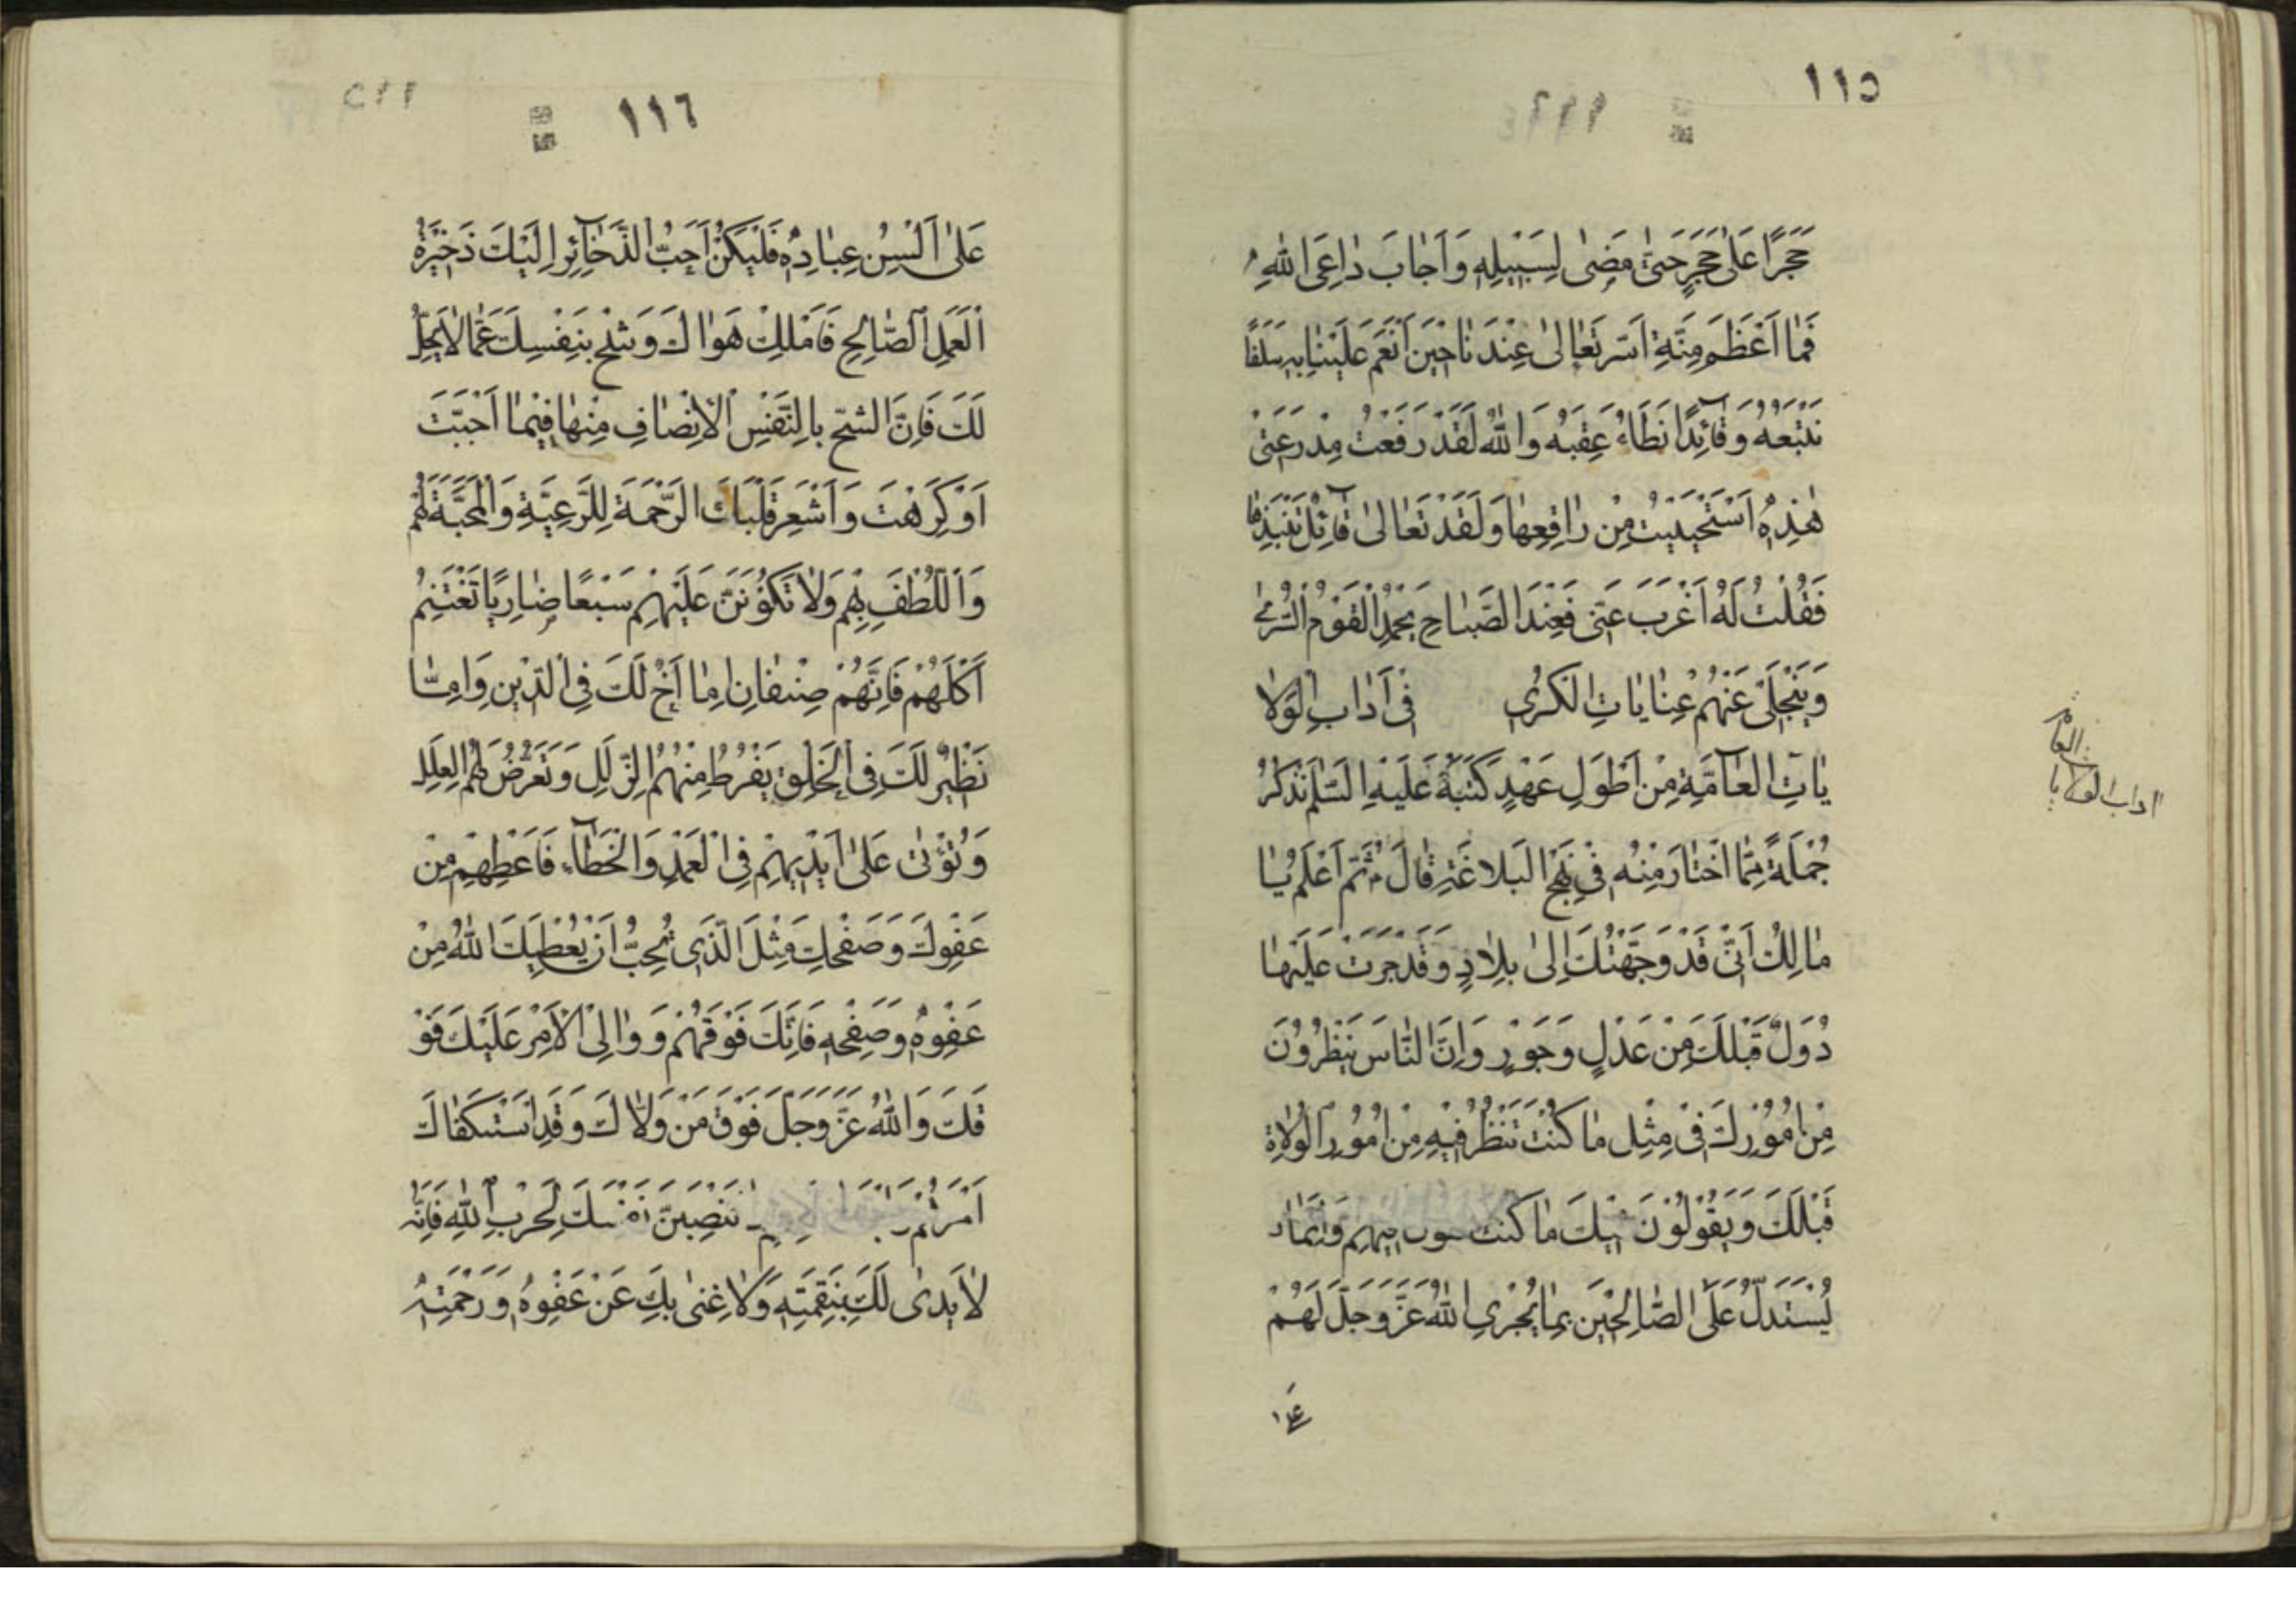 ١١٥
حَجَرًا عَلىٰ حَجَرٍ حَتّىٰ مَضىٰ لِسَبيلِهِ وَ اَجابَ داعِىَ اللهِ
فَما اَعْظَمَ مِنَّةِ اَسَّر تَعٰالىٰ عِنْدَناٰ حينَ اَنْعَمَ عَلَيْنا بِهِ سَلَفًا
نَتَّبِعُهُ وَ قآئِدًا نَطَاءُ عِقَبَهُ وَ اللهُ لَقَدْ رَفَعْتُ مِدْرَعَتى
هٰذِهِ اَسْتَحْيَيْتُ مِنْ راقِعِها وَ لَقَدْ تَعٰالىٰ قآئِلٌ تَنْبِذُهٰا
فَقُلْتُ لَهُ اَغْرَبَ عَنّى فَعِنْدَ الصَّباحِ يَحْمَدُ الْقَوْمُ السُّرىٰ
وَ يَنْجَلى عَنْهُمْ عِنٰاياتِ الْكَرىٰ فى اَدابِ الْوَلا
ياتِ الْعٰآمَّةِ مِنْ اَطْوَلِ عَهْدٍ كَتَبَهُ عَلَيْهِ السَّلٰم نَذْكُرُ
جُمْلَةً مِمَّا اخْتٰارَ مِنْهُ فى نَهْجِ الْبَلاغَةِ قٰالَ ثُمَّ اَعْلَمْ يٰا
مٰالِكُ اَنّى قَدْ وَجَّهْتُكَ اِلىٰ بِلادٍ وَ قَدْ جَرَتْ عَلَيْهٰا
دُوَلٌ قَبْلَكَ مِنْ عَدْلٍ وَ جَوْرٍ وَ اِنَّ النّٰاسَ يَنْظُرُونَ
مِنْ اُمُورِكَ فى مِثْلِ مٰا كُنْتَ تَنْظُرُ فيهِ مِنْ اُمُورِ الْوُلاةِ
قَبْلَكَ وَ يَقُولُونَ فيكَ مٰا كُنْتَ تقول فيهِمْ وَ اِنَّمٰا
يُسْتَدَلُّ عَلَى الصّٰالِحينَ بِمٰا يُجْرِى اللهُ عَزَّ وَ جَلَّ لَهُمْ
على
اداب الولايات
العامه
١١٦
عَلىٰ اَلْسُنِ عِبٰادِهِ فَلْيَكُنْ اَحَبُّ الذَّخٰآئِرِ اِلَيْكَ ذَخيرَةُ
الْعَمَلِ الصّٰالِحِ فَامْلِكْ هَوٰاكَ وَ شُحَّ بِنَفْسِكَ عَمّٰا لا يَحِلُّ
لَكَ فَاِنَّ الشُّحَّ بِالنَّفْسِ الْاِنْصٰافِ مِنْهٰا فيمٰا اَحْبَبْتَ
اَوْ كَرِهْتَ وَ اَشْعِرْ قَلْبَاكَ الرَّحْمَةَ لِلرَّعِيَّةِ وَ الْمَحَبَّةَ لَهُمْ
وَ اللُّطْفَ بِهِمْ وَ لا تَكُونَنَّ عَلَيْهِمْ سَبُعًا ضٰارِيًا تَغْتَنِمُ
اَكْلَهُمْ فَاِنَّهُمْ صِنْفٰانِ اِمّٰا اَخٌ لَكَ فِى الدّينِ وَ اِمّٰا
نَظيرٌ لَكَ فِى الْخَلْقِ يَفْرُطُ مِنْهُمُ الزَّلَلِ وَ تَعْرُضُ لَهُمُ الْعِلَلِ
وَ تُؤْتىٰ عَلىٰ اَيْديهِمْ فِى الْعَمْدِ وَ الْخَطٰآءِ فَاَعْطِهِمْ مِنْ
عَفْوِكَ وَ صَفْحِكَ مِثْلَ الَّذى تُحِبُّ اَنْ يُعْطِيَكَ اللهُ مِنْ
عَفْوِهِ وَ صَفْحِهِ فَاِنَّكَ فَوْقَهُمْ وَ وٰالِى الْاَمْرِ عَلَيْكَ فَوْ
قَكَ وَ اللهُ عَزَّ وَ جَلَّ فَوْقَ مَنْ وَلّاكَ وَ قَدِ اسْتَكْفٰاكَ
اَمْرَهُمْ تَنْصِبَنَّ نَفْسَكَ لِحَرْبِ اللهِ فَاِنَّهُ
لا يَدىٰ لَكَ بِنَقِمَتِهِ وَ لا غِنىٰ بِكَ عَنْ عَفْوِهِ وَ رَحْمَتِهِ